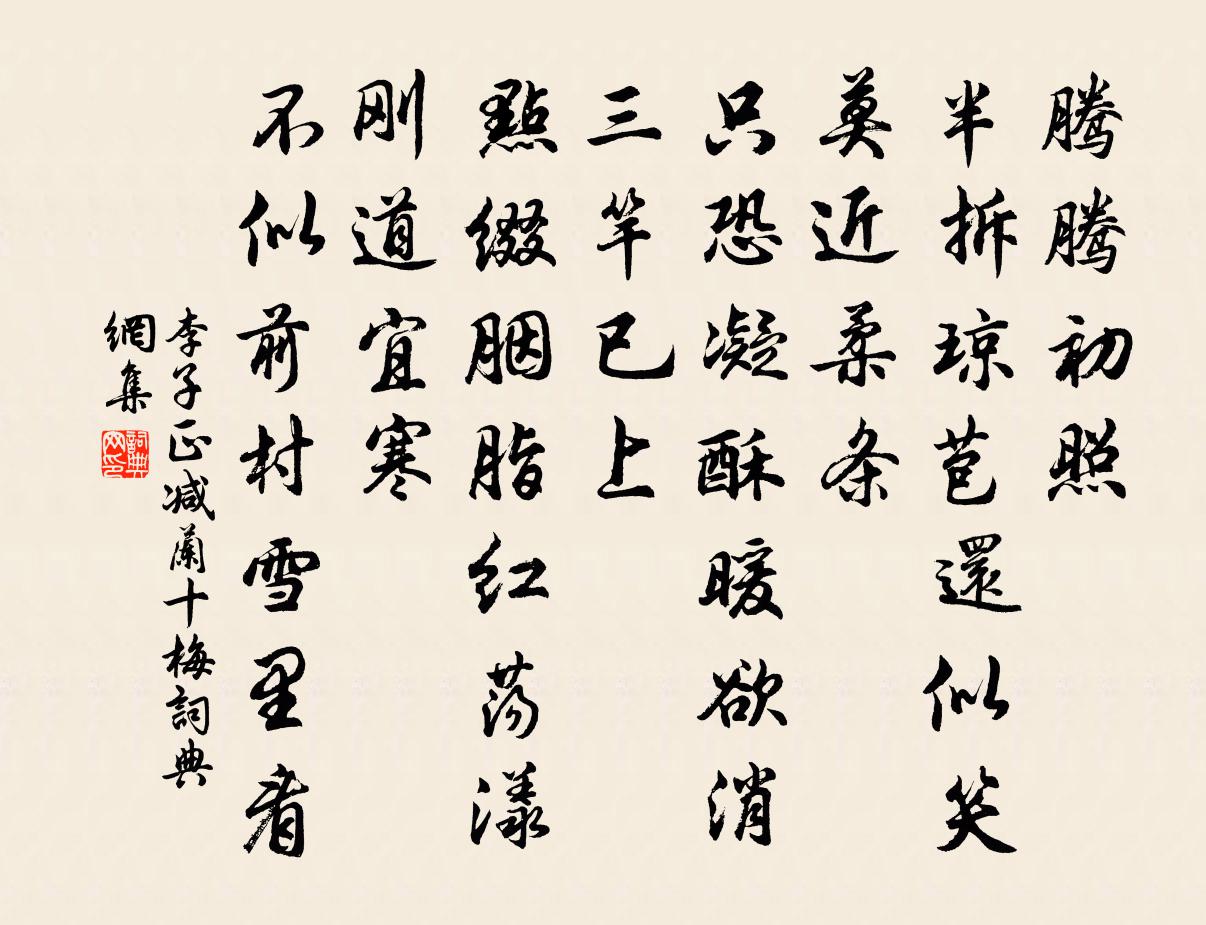 腾腾初照
半拆琼苞還似笑
莫近柔条
只恐凝酥暖欲消
三竿已上
點缀胭脂红荡漾
刚道宜寒
不似前村雪里看
李子正减蘭十梅詞典
網集
詞典
网印